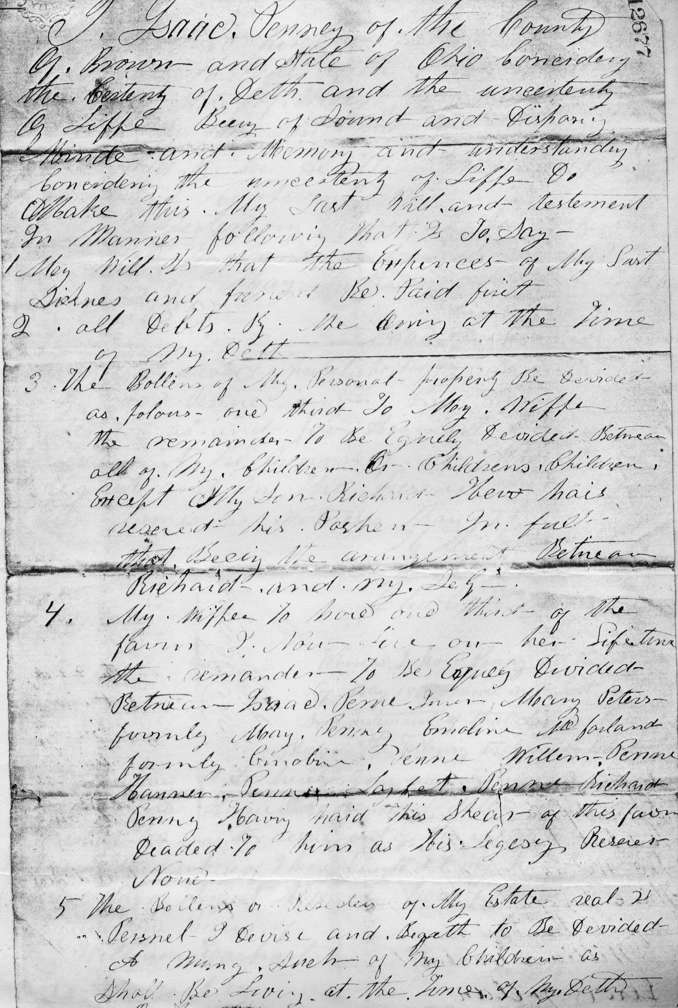 12677
I. Isaac. Penney of the County
Of. Brown and State of Ohio Conciderg
the. Certenty of. Deth. and the uncertenty
Of Liffe Beeig of Sound and Disposig
Minde and. Memory and understandig
Conciderig the uncertenty of. Liffe Do
Make this. My Last Will. and testement
In Manner followig That Is To, Say
1 My Will. Is that the Expences of My Last
Sicknes and Be Paid first
2. all Debts. By. Me Owing at the Time
of My. Deth
3. The Bollens of My. Personal property Be Devided
as. folows one third To My. Wiffe
the remainder To Be Equely Devided Between
all of. My. Children. Or Childrens. Children.
Except My Son. Richard Have hais
receved his. Poshen In. full
that. Beeig the arangement Between
Richard. and. my. Self.
4. My. Wiffe To have one third of the
farm I. Now Live on her Life time
the remander To Be Equely Devided
Between Isaac. Penne Mary Peters
formly Mary Penney Emoline Mc farland
formly Emoline. Penne Willem. Penne
Hanner. Penne. Penne Richard
Penny Having haid His Shear of this farm
Deaded. To him as His. Legesy. Receves
None
5 The Bollens or of. My Estate real &
Persnel I Devise and. Beqath to Be Devided
A Mung. Such of my Children as
Shall Be Livig. at. the. Time. of My. Deth